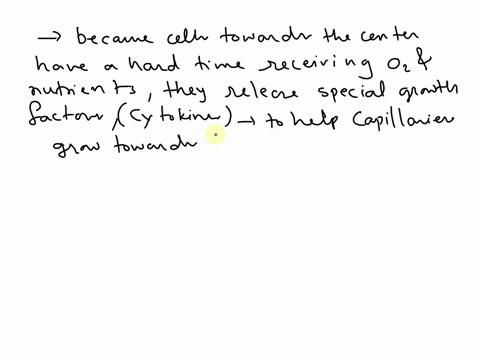 → because cells towards the center
have a hard time receiving O₂ &
nutrients, they release special growth
factors, (cytokines) → to help capillaries
grow towards